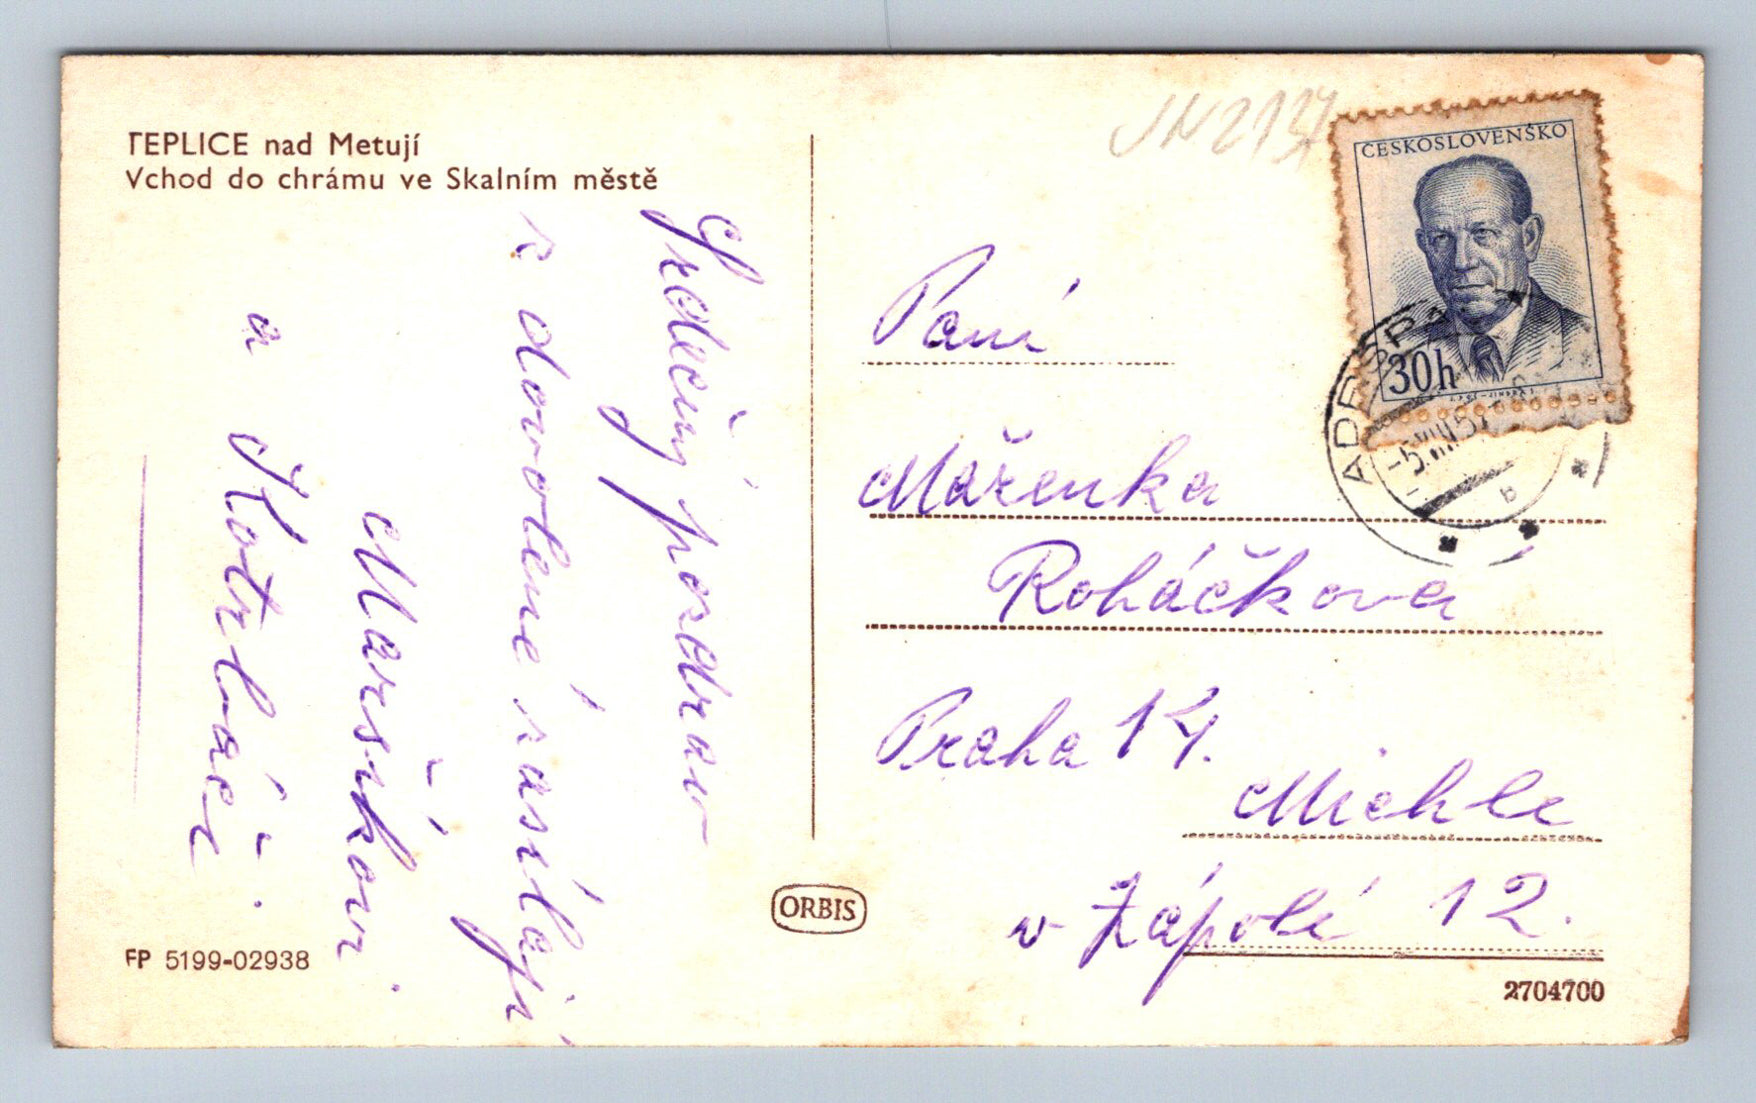 TEPLICE nad Metují
Vchod do chrámu ve Skalním městě
Srdečný pozdrav
z dovolené zasílají
Marsíkovi.
a Kotrbáči.
FP 5199-02938
ORBIS
JN2134
ČESKOSLOVENSKO
30h
ADRŠPA
-5.VIII.57
b
Paní
Mařenka
Roháčkova
Praha 14.
Michle
v Zápolí 12.
2704700